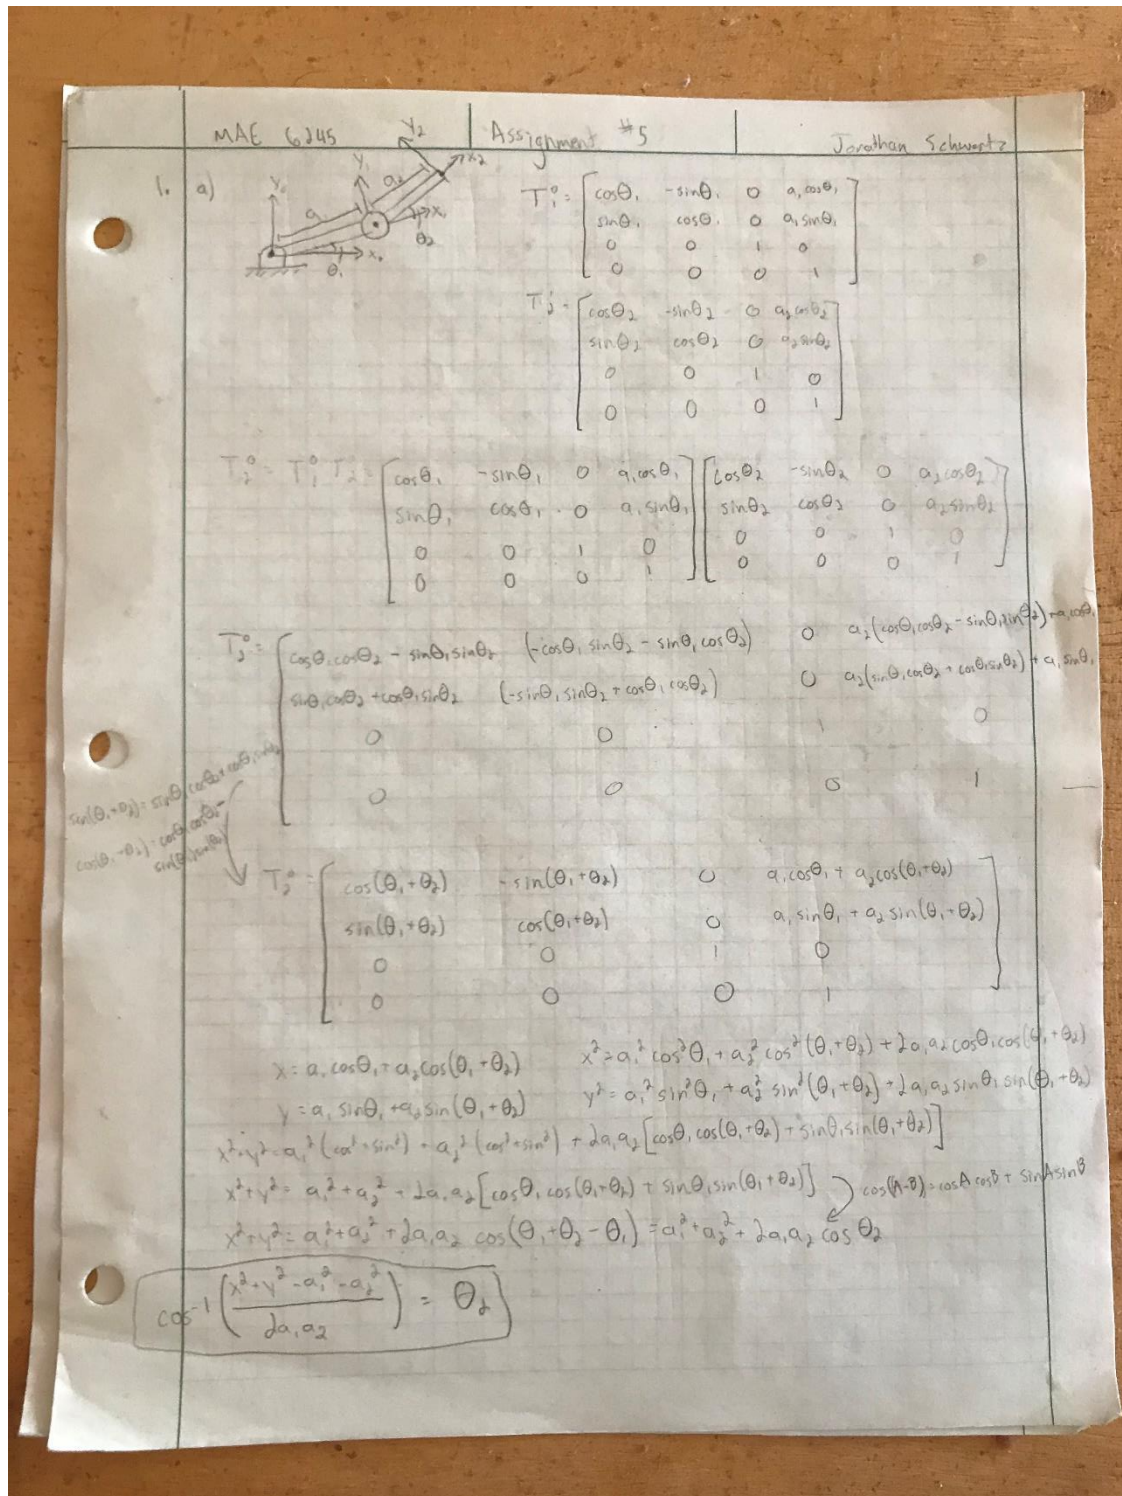 MAE 6245 Assignment #5 Jonathan Schwartz
1. a)
y₀ a₁ y₁ a₂ y₂ x₂ x₁ θ₂ θ₁ x₀
T₁⁰ = [cosθ₁ -sinθ₁ 0 a₁cosθ₁
sinθ₁ cosθ₁ 0 a₁sinθ₁
0 0 1 0
0 0 0 1]
T₂¹ = [cosθ₂ -sinθ₂ 0 a₂cosθ₂
sinθ₂ cosθ₂ 0 a₂sinθ₂
0 0 1 0
0 0 0 1]
T₂⁰ = T₁⁰ T₂¹ = [cosθ₁ -sinθ₁ 0 a₁cosθ₁] [cosθ₂ -sinθ₂ 0 a₂cosθ₂]
sinθ₁ cosθ₁ 0 a₁sinθ₁ sinθ₂ cosθ₂ 0 a₂sinθ₂
0 0 1 0 0 0 1 0
0 0 0 1 0 0 0 1
T₂⁰ = [cosθ₁cosθ₂ - sinθ₁sinθ₂ (-cosθ₁sinθ₂ - sinθ₁cosθ₂) 0 a₂(cosθ₁cosθ₂ - sinθ₁sinθ₂) + a₁cosθ₁
sinθ₁cosθ₂ + cosθ₁sinθ₂ (-sinθ₁sinθ₂ + cosθ₁cosθ₂) 0 a₂(sinθ₁cosθ₂ + cosθ₁sinθ₂) + a₁sinθ₁
0 0 1 0
0 0 0 1
sin(θ₁+θ₂) = sinθ₁cosθ₂ + cosθ₁sinθ₂
cos(θ₁+θ₂) = cosθ₁cosθ₂ -
sin(θ₁)sin(θ₂)
T₂⁰ = [cos(θ₁+θ₂) -sin(θ₁+θ₂) 0 a₁cosθ₁ + a₂cos(θ₁+θ₂)
sin(θ₁+θ₂) cos(θ₁+θ₂) 0 a₁sinθ₁ + a₂sin(θ₁+θ₂)
0 0 1 0
0 0 0 1]
x = a₁cosθ₁ + a₂cos(θ₁+θ₂) x² = a₁²cos²θ₁ + a₂²cos²(θ₁+θ₂) + 2a₁a₂cosθ₁cos(θ₁+θ₂)
y = a₁sinθ₁ + a₂sin(θ₁+θ₂) y² = a₁²sin²θ₁ + a₂²sin²(θ₁+θ₂) + 2a₁a₂sinθ₁sin(θ₁+θ₂)
x²+y² = a₁²(cos²+sin²) + a₂²(cos²+sin²) + 2a₁a₂[cosθ₁cos(θ₁+θ₂) + sinθ₁sin(θ₁+θ₂)]
x²+y² = a₁²+a₂² + 2a₁a₂[cosθ₁cos(θ₁+θ₂) + sinθ₁sin(θ₁+θ₂)] cos(A-B) = cosAcosB + sinAsinB
x²+y² = a₁²+a₂² + 2a₁a₂ cos(θ₁+θ₂-θ₁) = a₁²+a₂² + 2a₁a₂ cosθ₂
cos⁻¹((x²+y²-a₁²-a₂²)/(2a₁a₂)) = θ₂